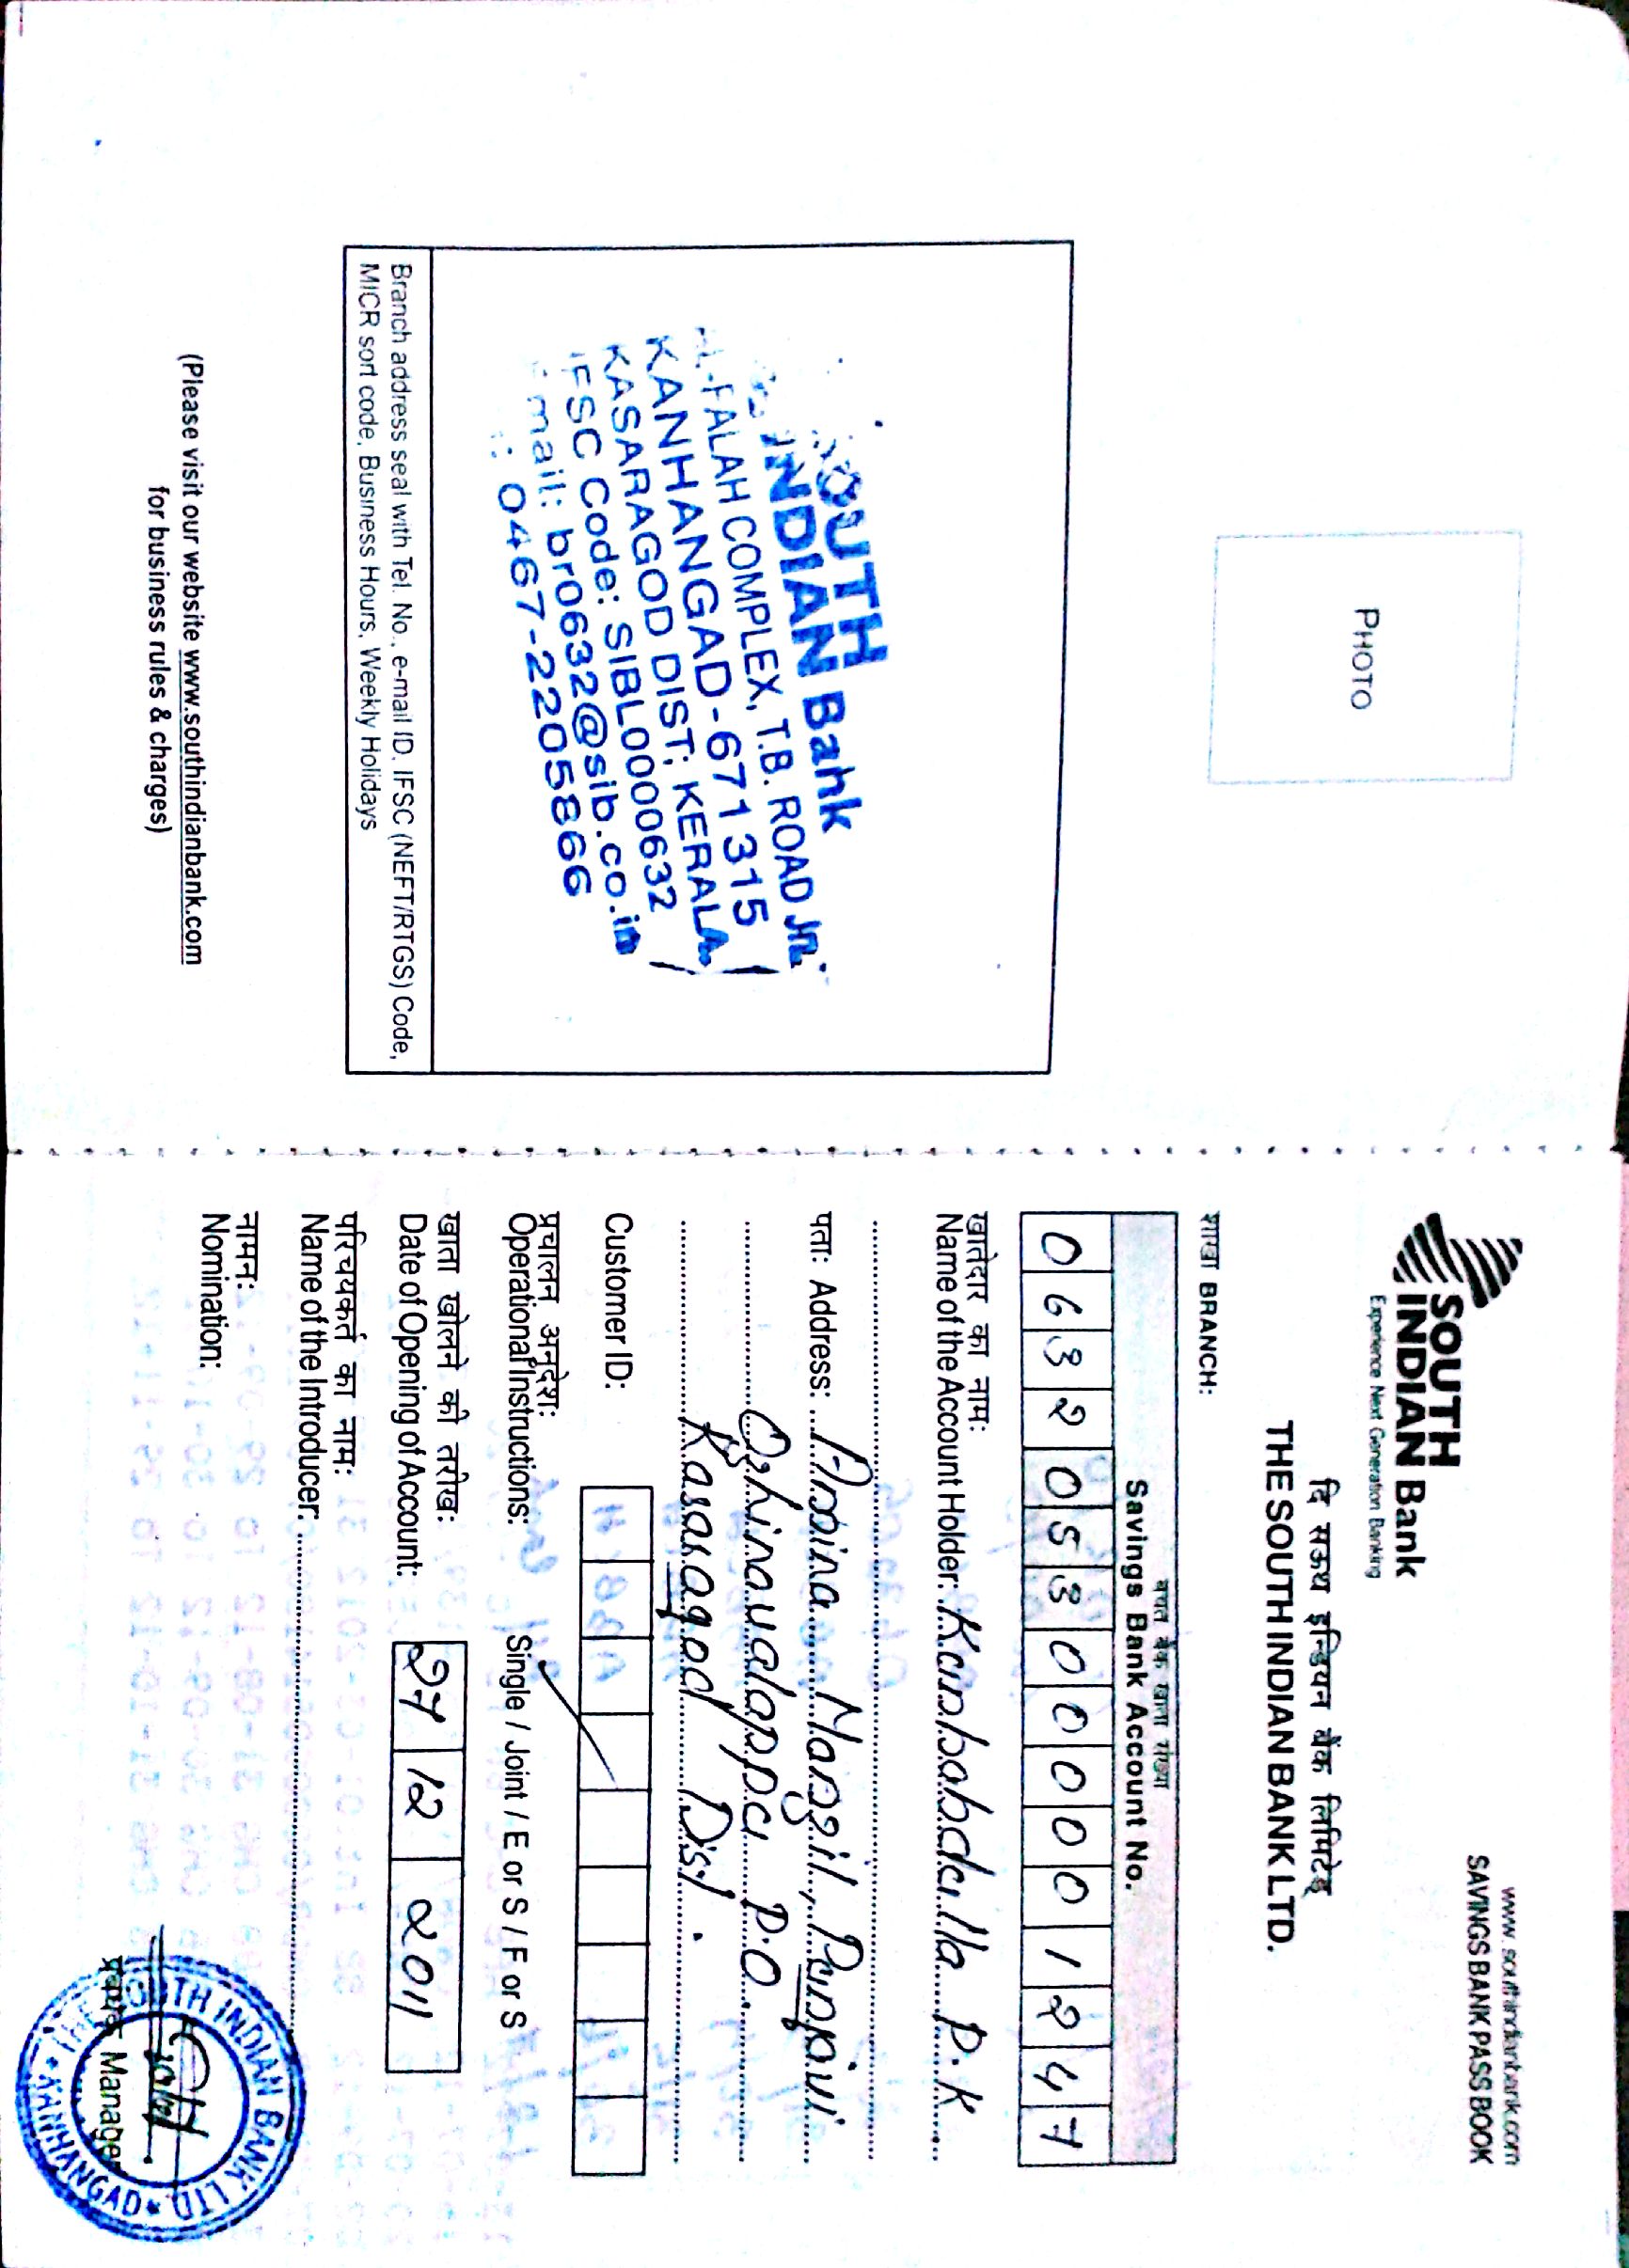 PHOTO
SOUTH
INDIAN Bank
AL-FALAH COMPLEX, T.B. ROAD Jn.
KANHANGAD-671315
KASARAGOD DIST; KERALA
IFSC Code: SIBL0000632
mail: br0632@sib.co.in
: 0467-2205866
Branch address seal with Tel. No., e-mail ID, IFSC (NEFT/RTGS) Code,
MICR sort code, Business Hours, Weekly Holidays
(Please visit our website www.southindianbank.com
for business rules & charges)
www.southindianbank.com
SAVINGS BANK PASS BOOK
SOUTH
INDIAN Bank
Experience Next Generation Banking
दि साउथ इन्डियन बैंक लिमिटेड
THE SOUTH INDIAN BANK LTD.
शाखा BRANCH:
बचत बैंक खाता संख्या
Savings Bank Account No.
0632053000001247
खातेदार का नाम:
Name of the Account Holder: Kunhabdulla P.K
पता: Address: Manzil,
P.O
Kasaragod Dist.
Customer ID:
प्रचालन अनुदेश:
Operational Instructions: Single / Joint / E or S / F or S
खाता खोलने की तरीख:
Date of Opening of Account: 27 12 2011
परिचयकर्त का नाम:
Name of the Introducer:
नामन:
Nomination:
THE SOUTH INDIAN BANK LTD
KANHANGAD
Manager